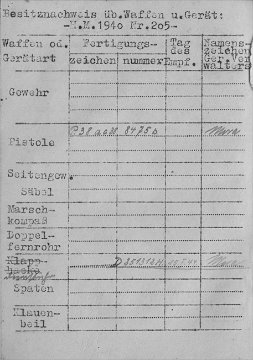 Besitznachweis üb.Waffen u.Gerät:
-H.M.1940 Nr.205-
Waffen od. Gerätart
Fertigungs-
zeichen nummer
Tag des Empf.
Namens-zeichen Ger.Ver walters
Gewehr
Pistole P38 8475
Seitengew.
Säbel
Marsch-
kompaß
Doppel-
fernrohr
Klapp-
hacke
Spaten
Klauen-
beil